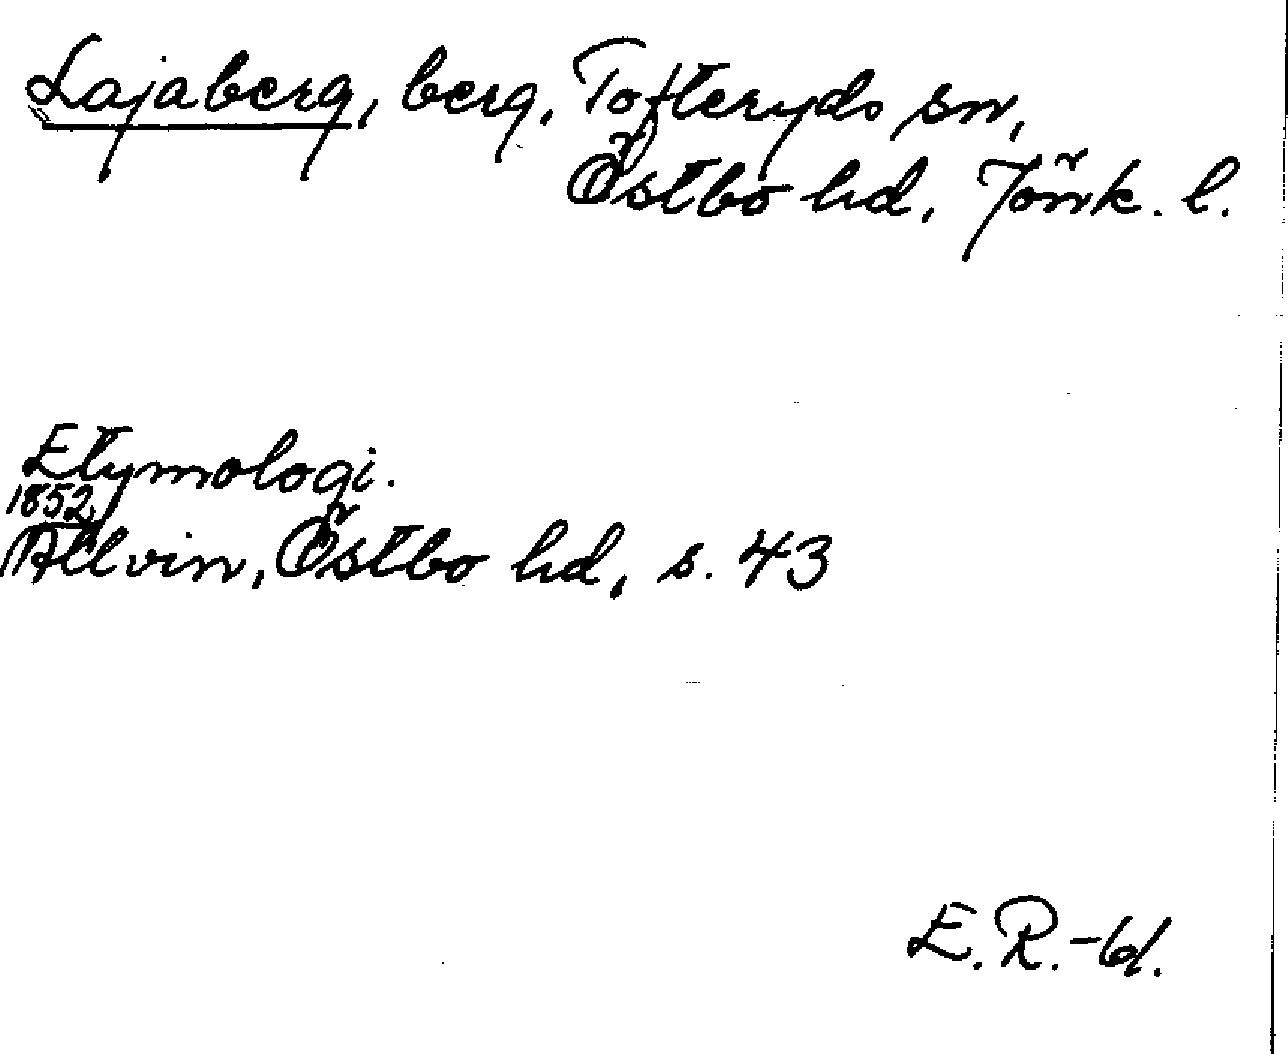 Lajaberg, berg, Tofteryds sn,
Östbo hd, Jönk. l.
Etymologi.
1852,
Allvin, Östbo hd, s. 43
E. R. -61.